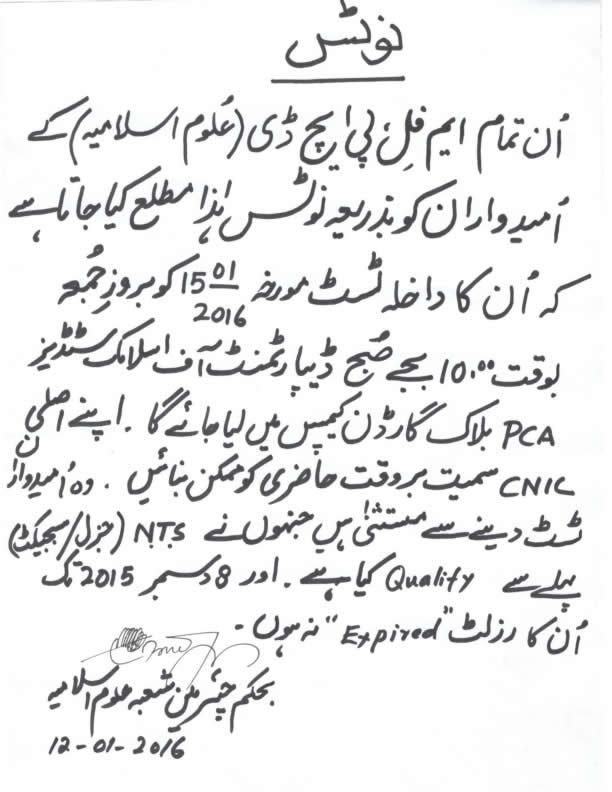 نوٹس
اُن تمام ایم فِل، پی ایچ ڈی (عُلوم اسلامیہ) کے
اُمیدواران کو بذریعہ نوٹس ہٰذا مطلع کیا جاتا ہے
کہ اُن کا داخلہ ٹسٹ مورخہ 15 01/2016 کو بروزِ جُمعہ
بوقت 10:00 بجے صُبح ڈیپارٹمنٹ آف اسلامک سٹڈیز
PCA بلاک گارڈن کیمپس میں لیا جائے گا۔ اپنے اصلی
CNIC سمیت بروقت حاضری کو ممکن بنائیں۔ وہ اُمیدواران
ٹسٹ دینے سے مستثنیٰ ہیں جنہوں نے N.T.S (جنرل/سبجیکٹ)
پہلے سے Qualify کیا ہے۔ اور 8 دسمبر 2015 تک
اُن کا رزلٹ "Expired" نہ ہوں۔
بحکم چئیرمین شعبہ علوم اسلامیہ
12-01-2016